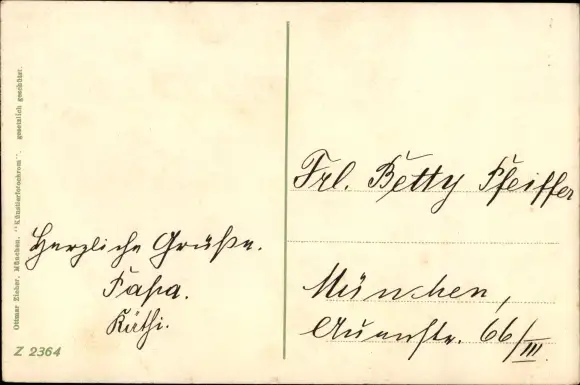 Ottmar Zieher, München. "Künstlerheliochrom". gesetzlich geschützt.
Herzliche Grüße.
Papa.
Käthi.
Z 2364
Frl. Betty Pfeiffer
München,
Auenstr. 66/III